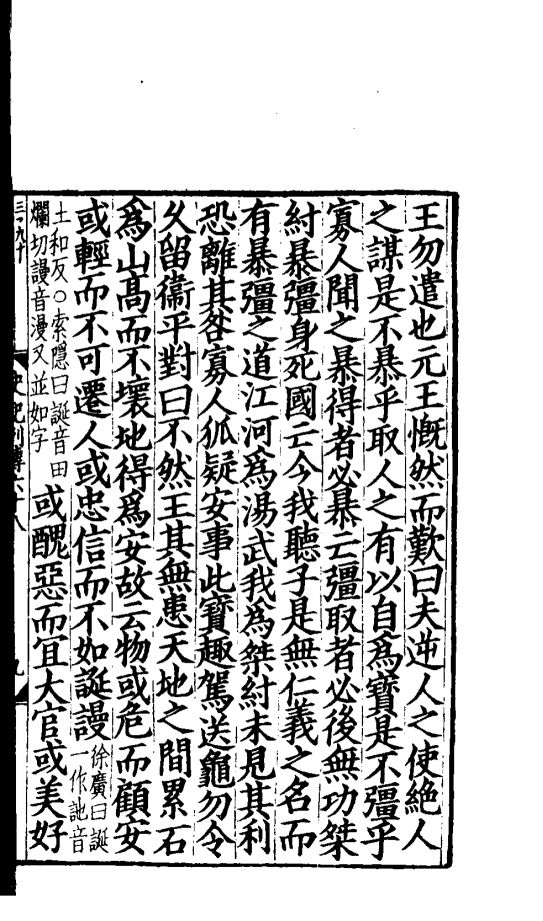 王勿遣也元王慨然而歎曰夫逆人之使絶人
之謀是不暴乎取人之有以自爲寶是不彊乎
寡人聞之暴得者必暴亡彊取者必後無功桀
紂暴彊身死國亡今我聽子是無仁義之名而
有暴彊之道江河爲湯武我爲桀紂未見其利
恐離其咎寡人狐疑安事此寶趣駕送龜勿令
久留衞平對曰不然王其無患天地之間累石
爲山髙而不壞地得爲安故云物或危而顧安
或輕而不可遷人或忠信而不如誕謾徐廣曰誕一作訑音
土和反○索隱曰誕音田爛切謾音漫又並如字或醜惡而宜大官或美好
史記列傳六十八
九